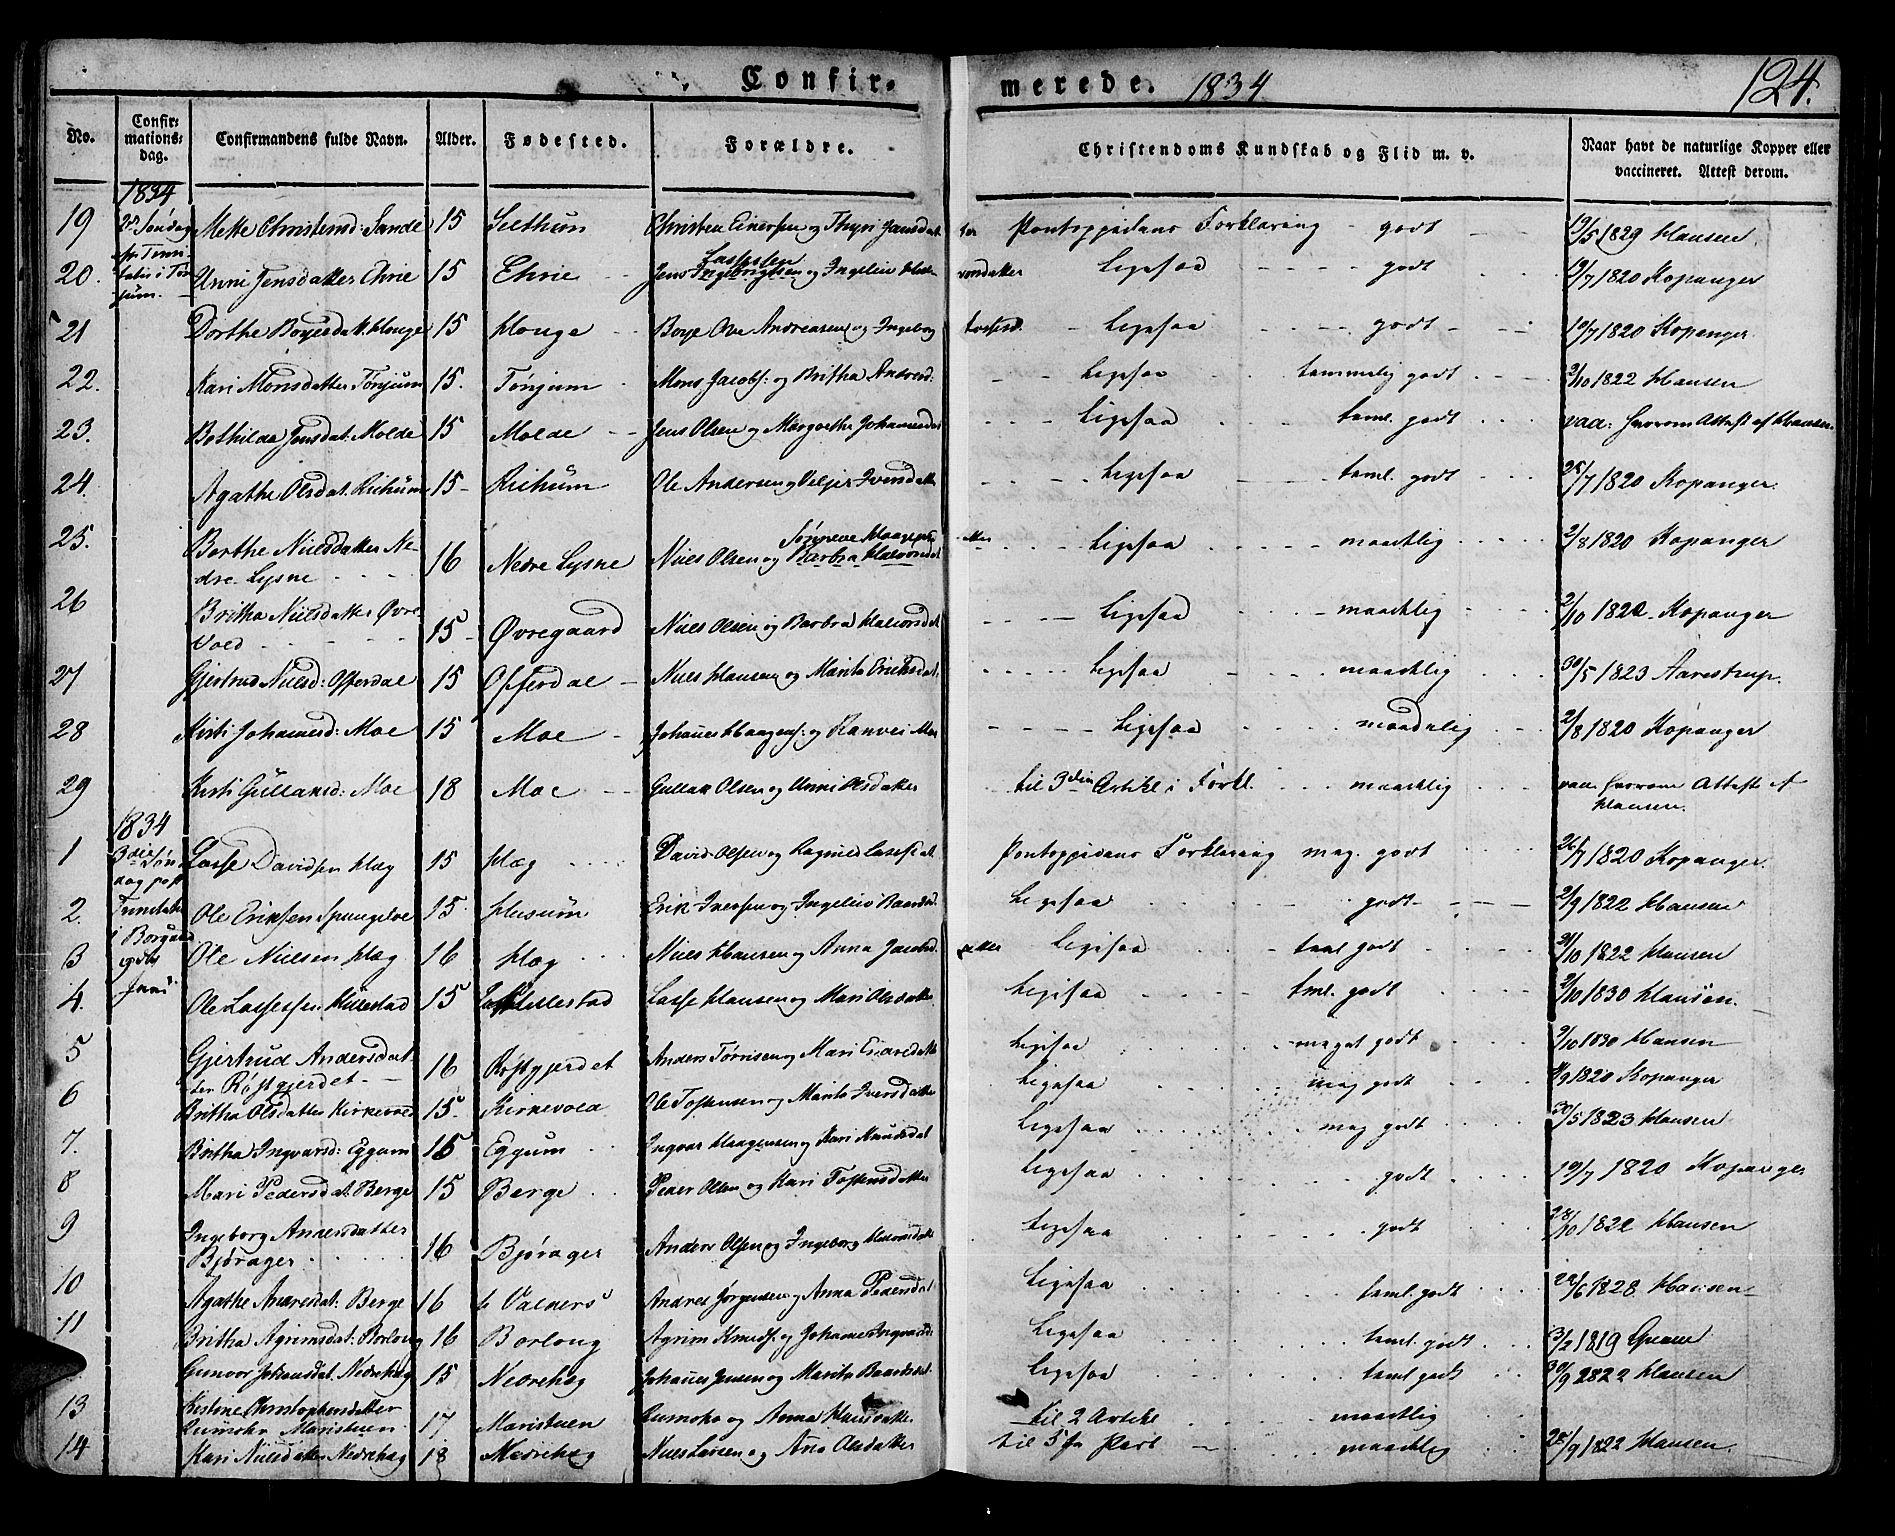 Confir-
merede. 1834
124.
No. Confirmationsdag. Confirmandens fulde Navn. Alder. Fødested. Forældre. Christendoms Kundskab og Flid m. v. Naar havt de naturlige Kopper eller vaccineret. Attest derom.
1834
19 Søndag Mette Christensd: Sande 15 Christen Einersen og Thyri Jansdat ter Pontoppidans Forklaring - godt 19/5 1829 Hansen
20. Unni Jensdatter Ehrie 15 Ehrie Jens og Ingeliv Ligesaa godt 19/7 1820 Kopanger
21 Dorthe Boyesdatt. Houge 15 Houge Boye Ole Andreasen og Ingeborg Ligesaa godt 19/7 1820 Kopanger.
22. Kari Monsdatter Tønjum 15. Tønjum Mons Jacobs: og Britha Andersd: Ligesaa temmelig godt 2/10 1822 Hansen
23. Bothilda Jensdat: Molde 15 Molde Jens Olsen og Margrethe Johannesdat Ligesaa taml. godt vac: hvorom Attest af Hansen
24. Agathe Olsdat. 15 Ole Andersen og Iversdatter Ligesaa taml. godt 25/7 1820 Kopanger.
25. Borthe Nielsdatter Nedre Lysne 16 Nedre Lysne Niels Olsen og Barbra Halvorsdat Ligesaa maadlig 2/8 1820 Kopanger
26 Britha Nielsdatter Øvre Vold 15 Øvregaard Niels Olsen og Barbra Halvorsdat Ligesaa maadlig Kopanger
27 Gjertrud Nielsd: Offerdal 15 Offerdal Niels Hansen og Marita Eriksdat. Ligesaa maadlig 30/5 1823 Aarestrup.
28 Kirsti Johannesd: Moe 15 Moe Johannes Haagens: og Ranvei Ligesaa maadelig 2/8 1820 Kopanger
29 Kirsti Gullaksd: Moe 18 Moe Gullak Olsen og Unni Olsdatter til 3die Artikl i Forkl. maadlig vac. hvorom Attest af Hansen.
1834
1 3die Søndag post Lasse Davidsen Hæg 15 Hæg David Olsen og Ragnild Lassesdat Pontoppidans Forklaring mag. godt 26/7 1820 Kopanger.
2. Trinitatis i Borgund Ole Eriksen 15. Husum Erik Iversen og Ingeliv Baardsd Ligesaa godt 2/9 1822 Hansen
3 Ole Nielsen Hæg 16 Hæg Niels Hansen og Anna Jacobsd atter Ligesaa taml godt 31/10 1822 Hansen
4. Juni Ole Lassesen Killestad 15 Lasse Hansen og Mari Olsdatter Ligesaa tml. godt 2/10 1830 Hansen.
5 Gjertrud Andersdatter Røstgjerdet 16 Røstgjerdet Anders Tørrisen og Mari Ligesaa maget godt 2/10 1830 Hansen
6 Britha Olsdatter Kirkevold 15. Kirkevold Ole Tostensen og Marita Iversdatter Ligesaa mag godt 1820 Kopanger
7. Britha Ingvarsd: Eggum 15 Eggum Ingvar Haagensen og Kari Knudsdat Ligesaa mag godt 30/5 1823 Hansen
8 Mari Pedersdat: Berge 15 Berge Peder Olsen og Kari Tostensdatter Ligesaa godt 19/7 1820 Kopanger
9 Ingeborg Andersdatter Bjørager 16 Bjørager Anders Olsen og Ingeborg Halvorsdatter Ligesaa godt 28/10 1822 Hansen
10 Agathe Andresdat: Berge 16 Valders Andres Jørgensen og Anna Pedersdat Ligesaa taml. godt 22/6 1828 Hansen
11 Britha Agrimsdat: Borlong 16 Borlong Agrim Knuds: og Johanne Ingvardsd: Ligesaa taml. godt 3/2 1819
Gunvor Johansdat. Nedrehæg 15 Nedrehæg Johannes Jensen og Marita Baardsdat. Ligesaa taml godt 30/9 2822 Hansen
13 Kirstine Christophersdatter Maristuen 17. Maristuen og Anna Hansdatter til 2 Artikl maadlig
14 Kari Nielsdatter Nedrehæg 18 Nedrehæg Niels Larsen og Olsdatter til 5te Part maadlig 28/9 1822 Hansen